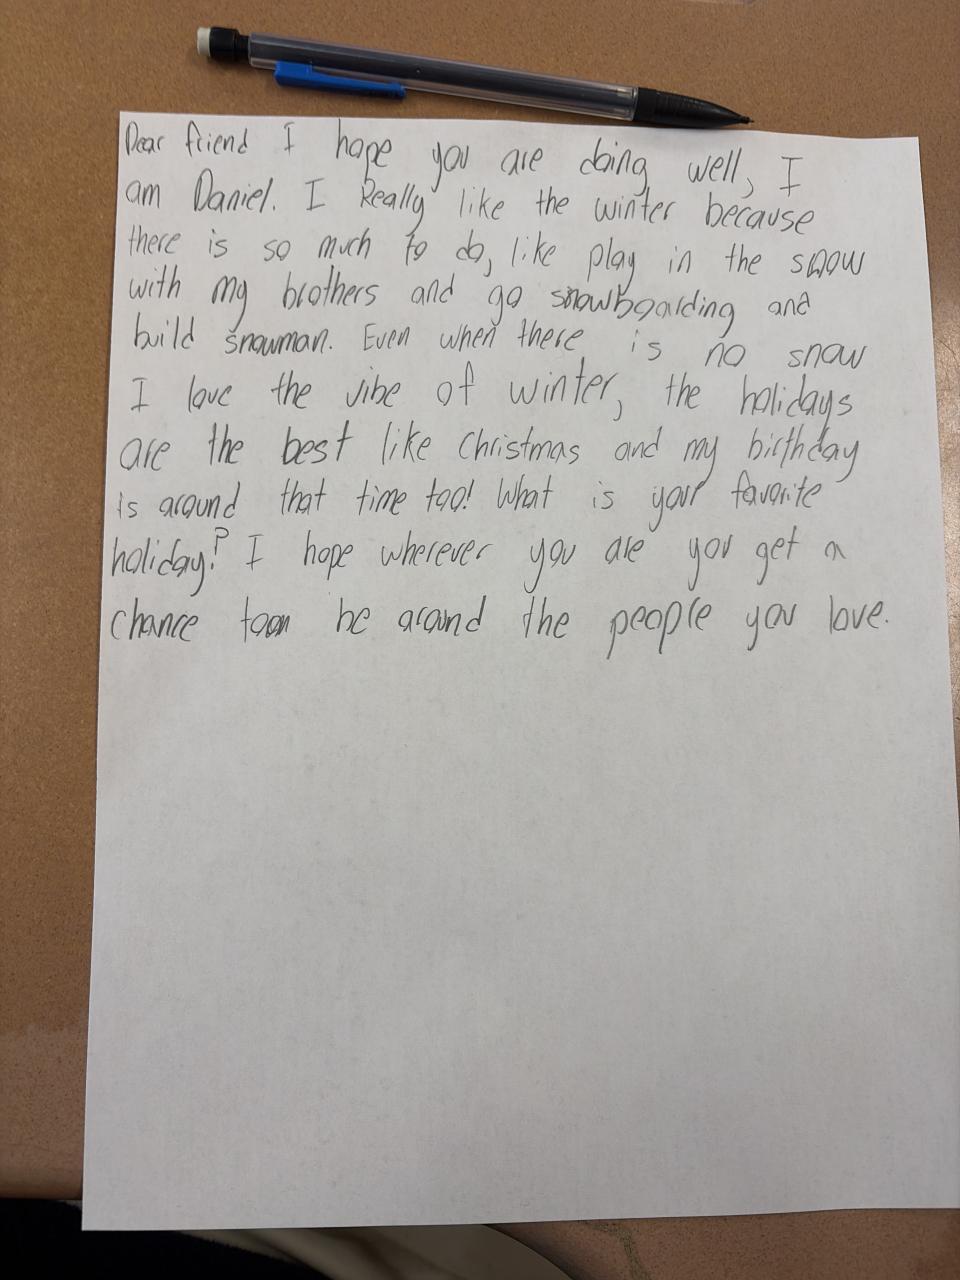 Dear friend I hope you are doing well, I
am Daniel. I Really like the winter because
there is so much to do, like play in the snow
with my brothers and go snowboarding and
build snowman. Even when there is no snow
I love the vibe of winter, the holidays
are the best like Christmas and my birthday
is around that time too! What is your favorite
holiday? I hope wherever you are you get a
chance be around the people you love.